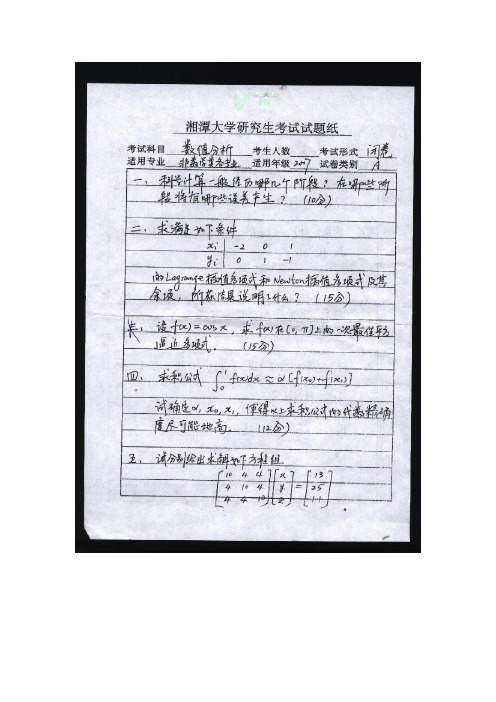 湘潭大学研究生考试试题纸
考试科目 数值分析 考生人数 考试形式 闭卷
适用专业 非数学类各专业 适用年级 2007 试卷类别 A
一、科学计算一般经历哪几个阶段？在哪些阶
段将有哪些误差产生？（10分）
二、求满足如下条件
xi | -2 0 1
yi | 0 1 -1
的Lagrange插值多项式和Newton插值多项式及其
余项，所获结果说明了什么？（15分）
三、设f(x)=cosx，求f(x)在[0,π]上的一次最佳平方
逼近多项式．（15分）
四、求积公式 ∫₀¹ f(x)dx ≈ α[f(x₀)+f(x₁)]
试确定α, x₀, x₁, 使得以上求积公式的代数精确
度尽可能地高．（12分）
五、试分别给出求解如下方程组
[10 4 4] [x] [13]
[4 10 4] [y] = [25]
[4 4 10] [z] [11]